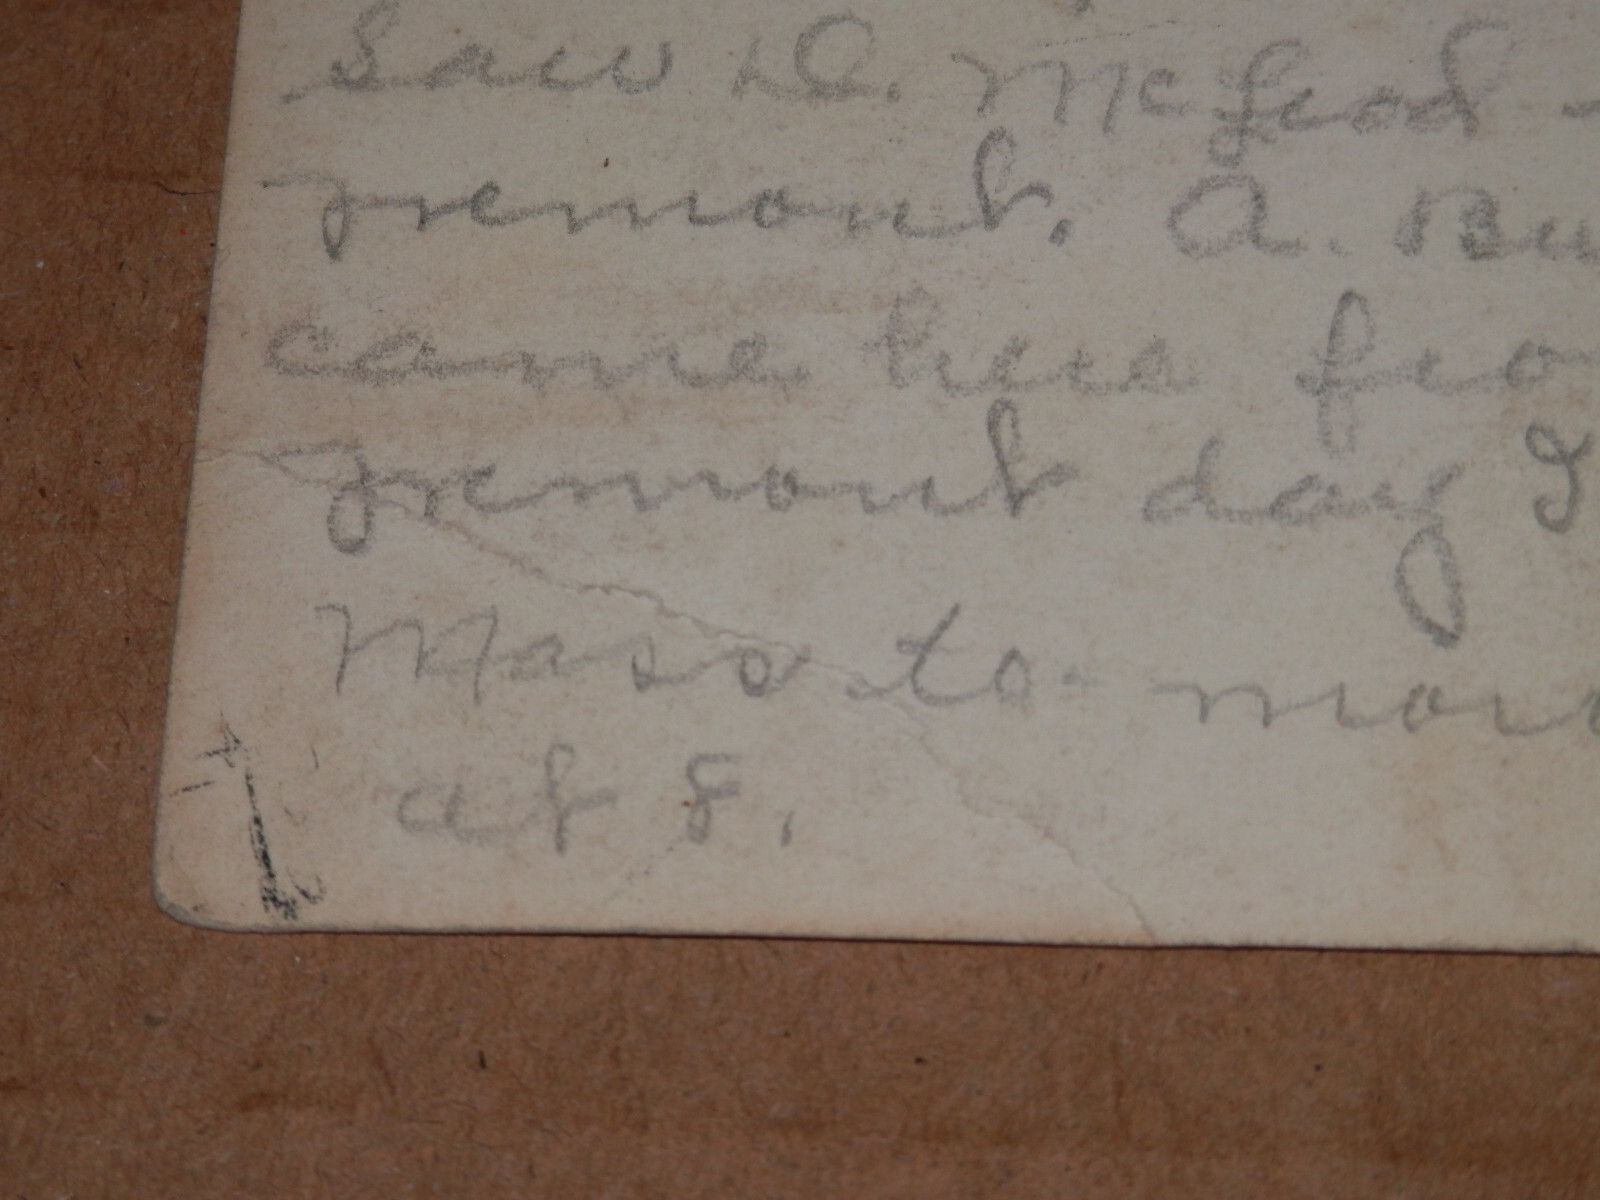 Saw D. McLeod -
Fremont. A. Bu
came here fro
Fremont day I
Mass to-morr
at 8.